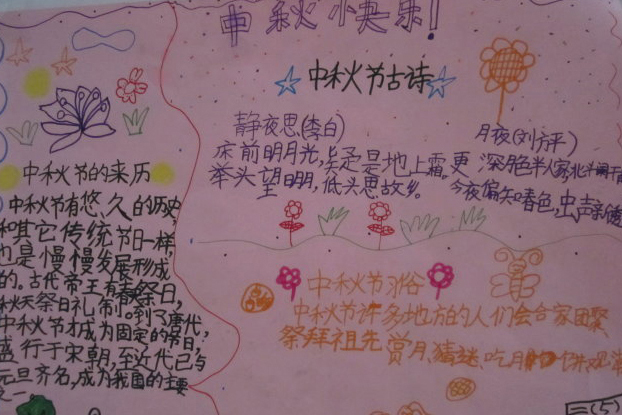 中秋快乐!
中秋节古诗
静夜思(李白)
床前明月光,疑是地上霜。
举头望明月,低头思故乡。
月夜(刘方平)
更深月色半人家,北斗阑干
今夜偏知春色,虫声新透
中秋节的来历
中秋节有悠、久的历史
和其它传统节日一样,
也是慢慢发展形成
的。古代帝王有春祭日,
秋天祭日礼制。到了唐代,
中秋节才成为固定的节日,
盛行于宋朝,至近代已与
元旦齐名,成为我国的主要
之一
中秋节习俗
中秋节许多地方的人们会合家团聚
祭拜祖先赏月、猜谜、吃月饼
三(5)